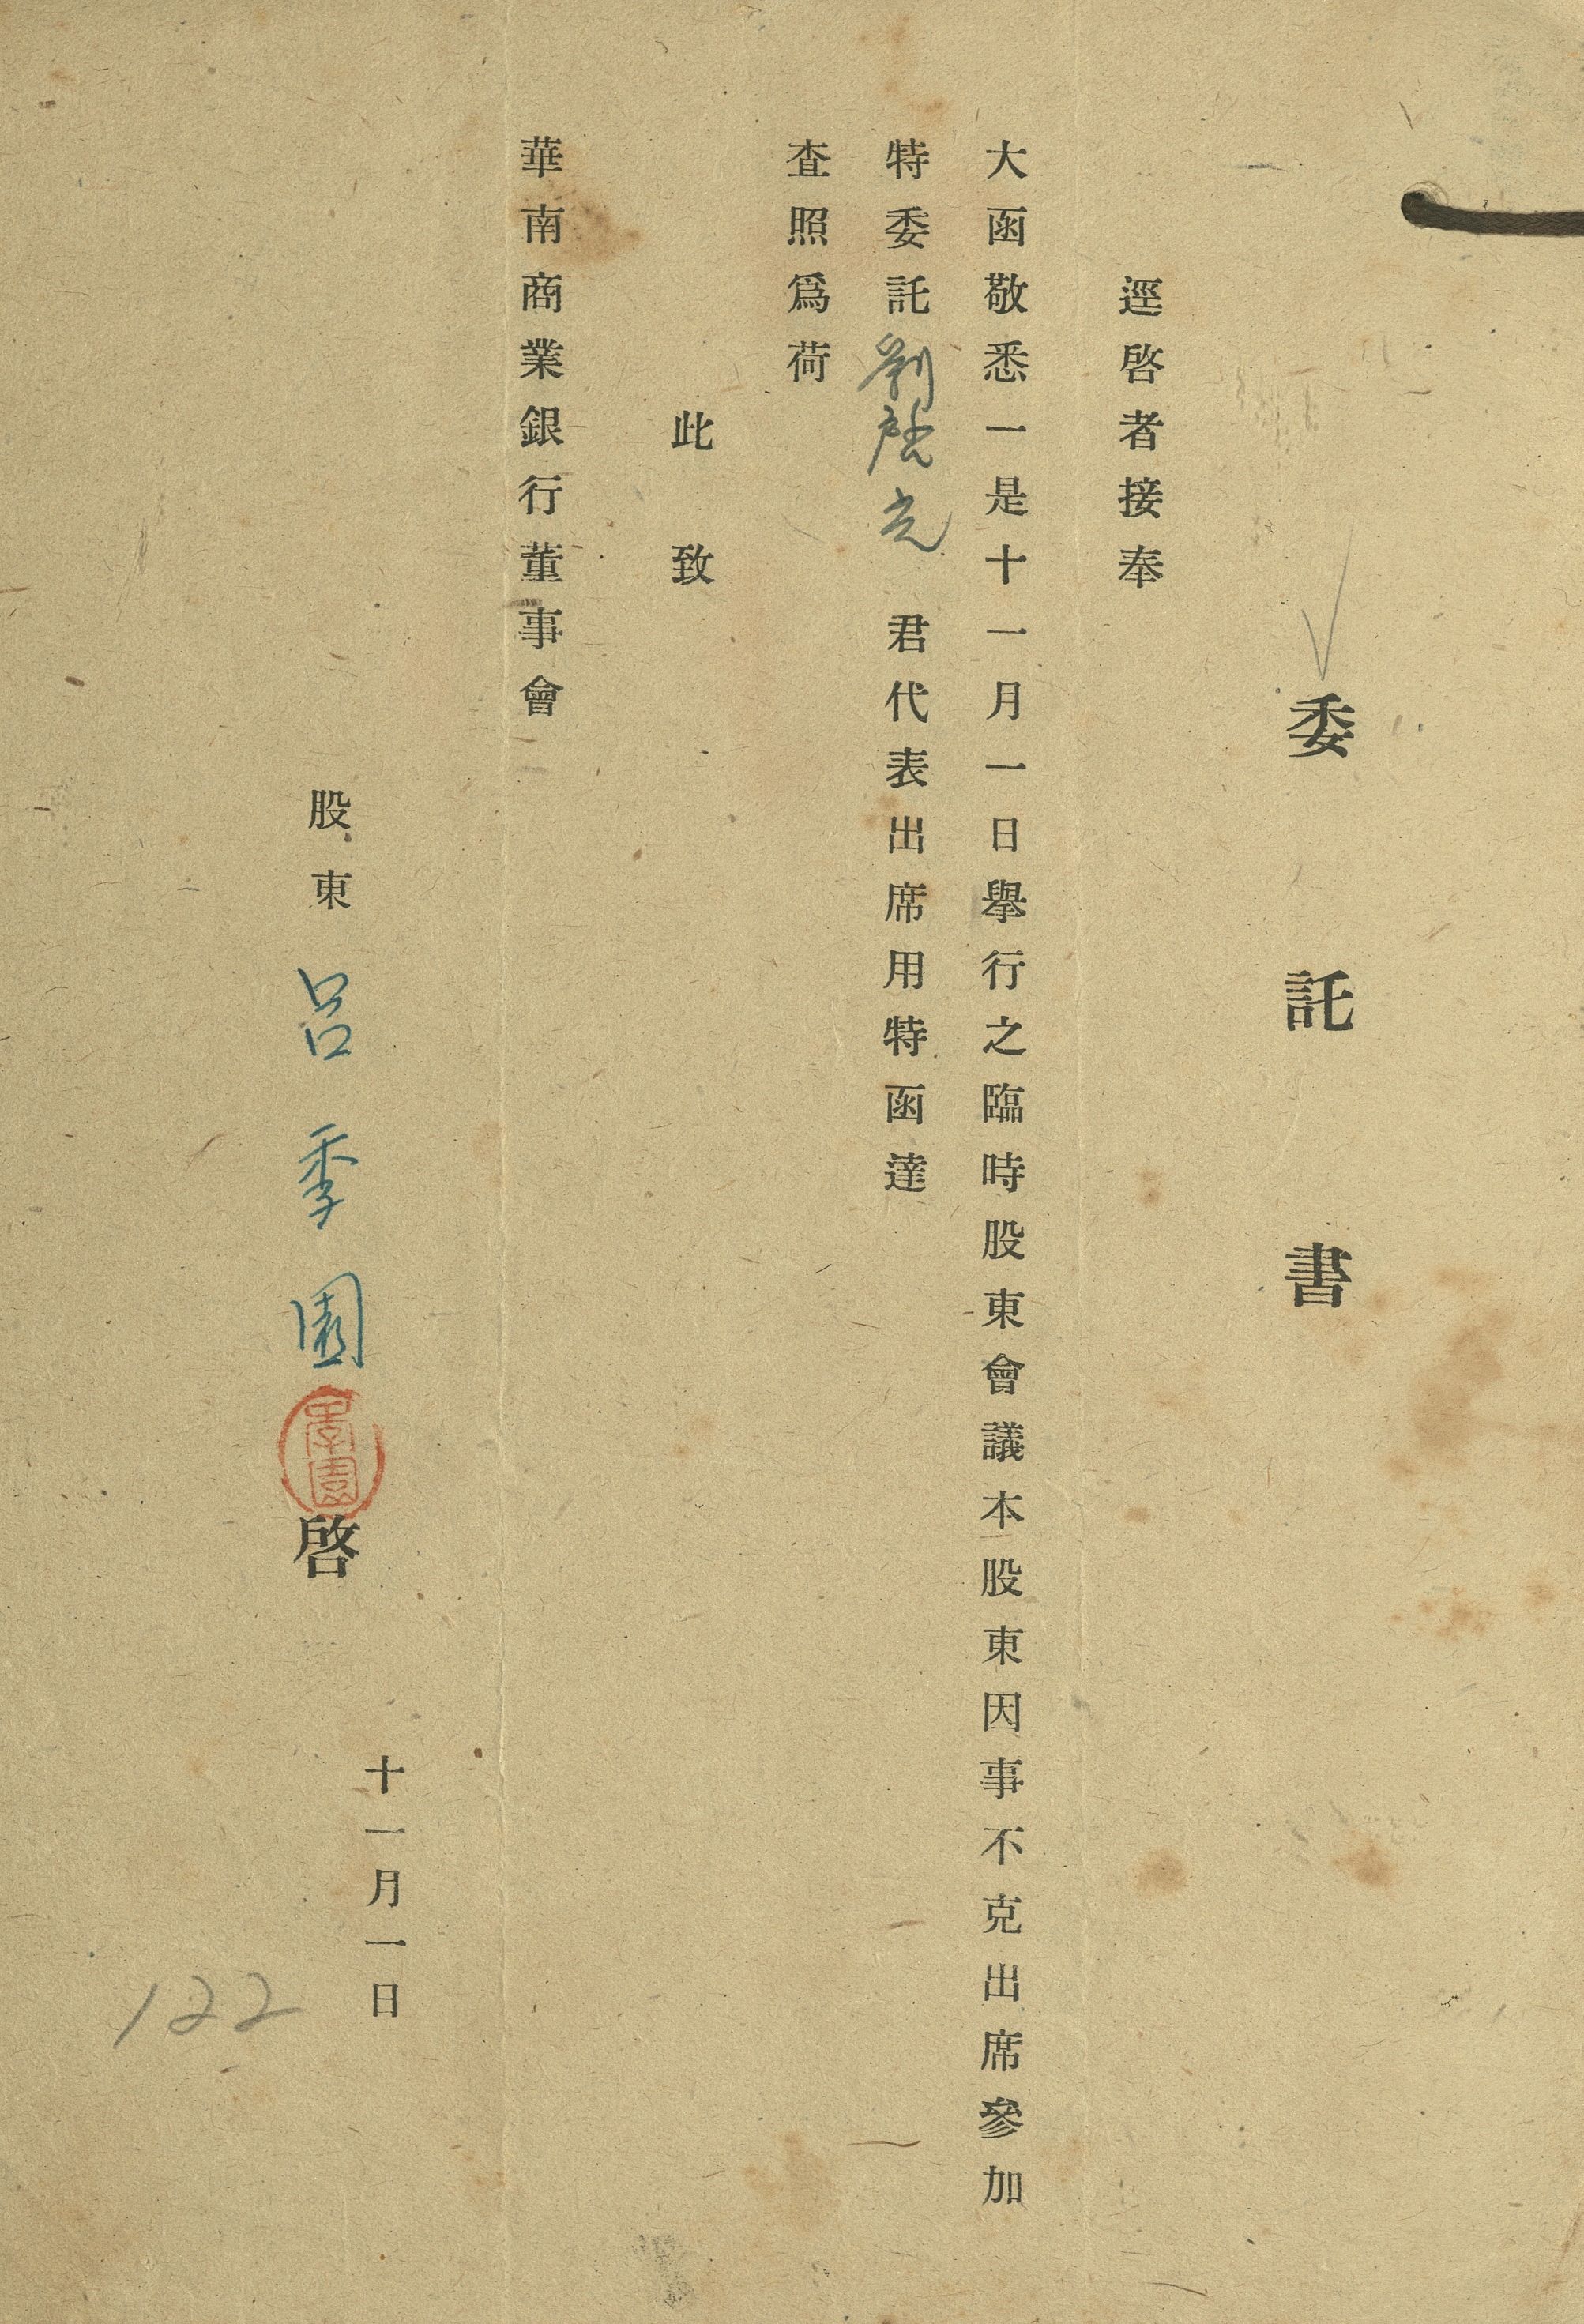 委託書
逕啓者接奉
大函敬悉一是十一月一日擧行之臨時股東會議本股東因事不克出席參加
特委託劉啓光君代表出席用特函達
查照爲荷
此致
華南商業銀行董事會
十一月一日
股東呂季園啓
季園
122